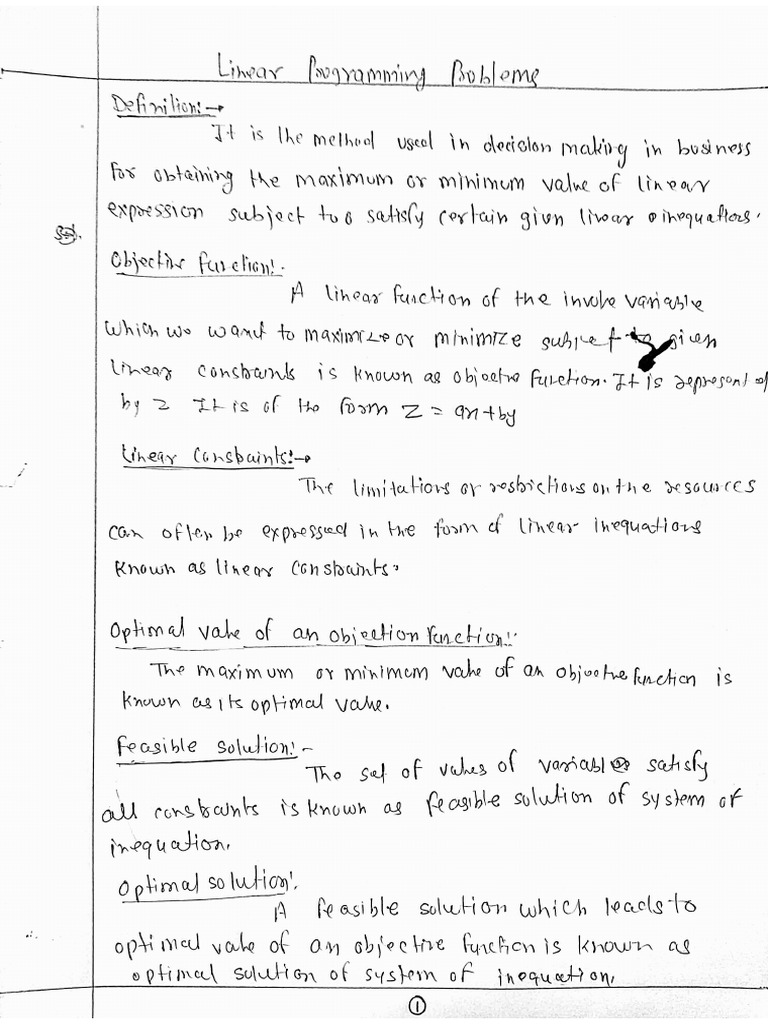 Linear Programming Problems
Definition:→
It is the method used in decision making in business
for obtaining the maximum or minimum value of linear
expression subject to satisfy certain given linear inequations.
Objective function:.
A linear function of the involve variable
which we want to maximize or minimize subject to given
linear constraints is known as objective function. It is represent of
by Z It is of the form Z = ax+by
Linear Constraints:→
The limitations or restrictions on the resources
can often be expressed in the form of linear inequations
known as linear constraints.
Optimal value of an objection function:
The maximum or minimum value of an objective function is
known as its optimal value.
Feasible solution:-
The set of values of variable satisfy
all constraints is known as feasible solution of system of
inequation.
Optimal solution:.
A feasible solution which leads to
optimal value of an objective function is known as
optimal solution of system of inequation.
1